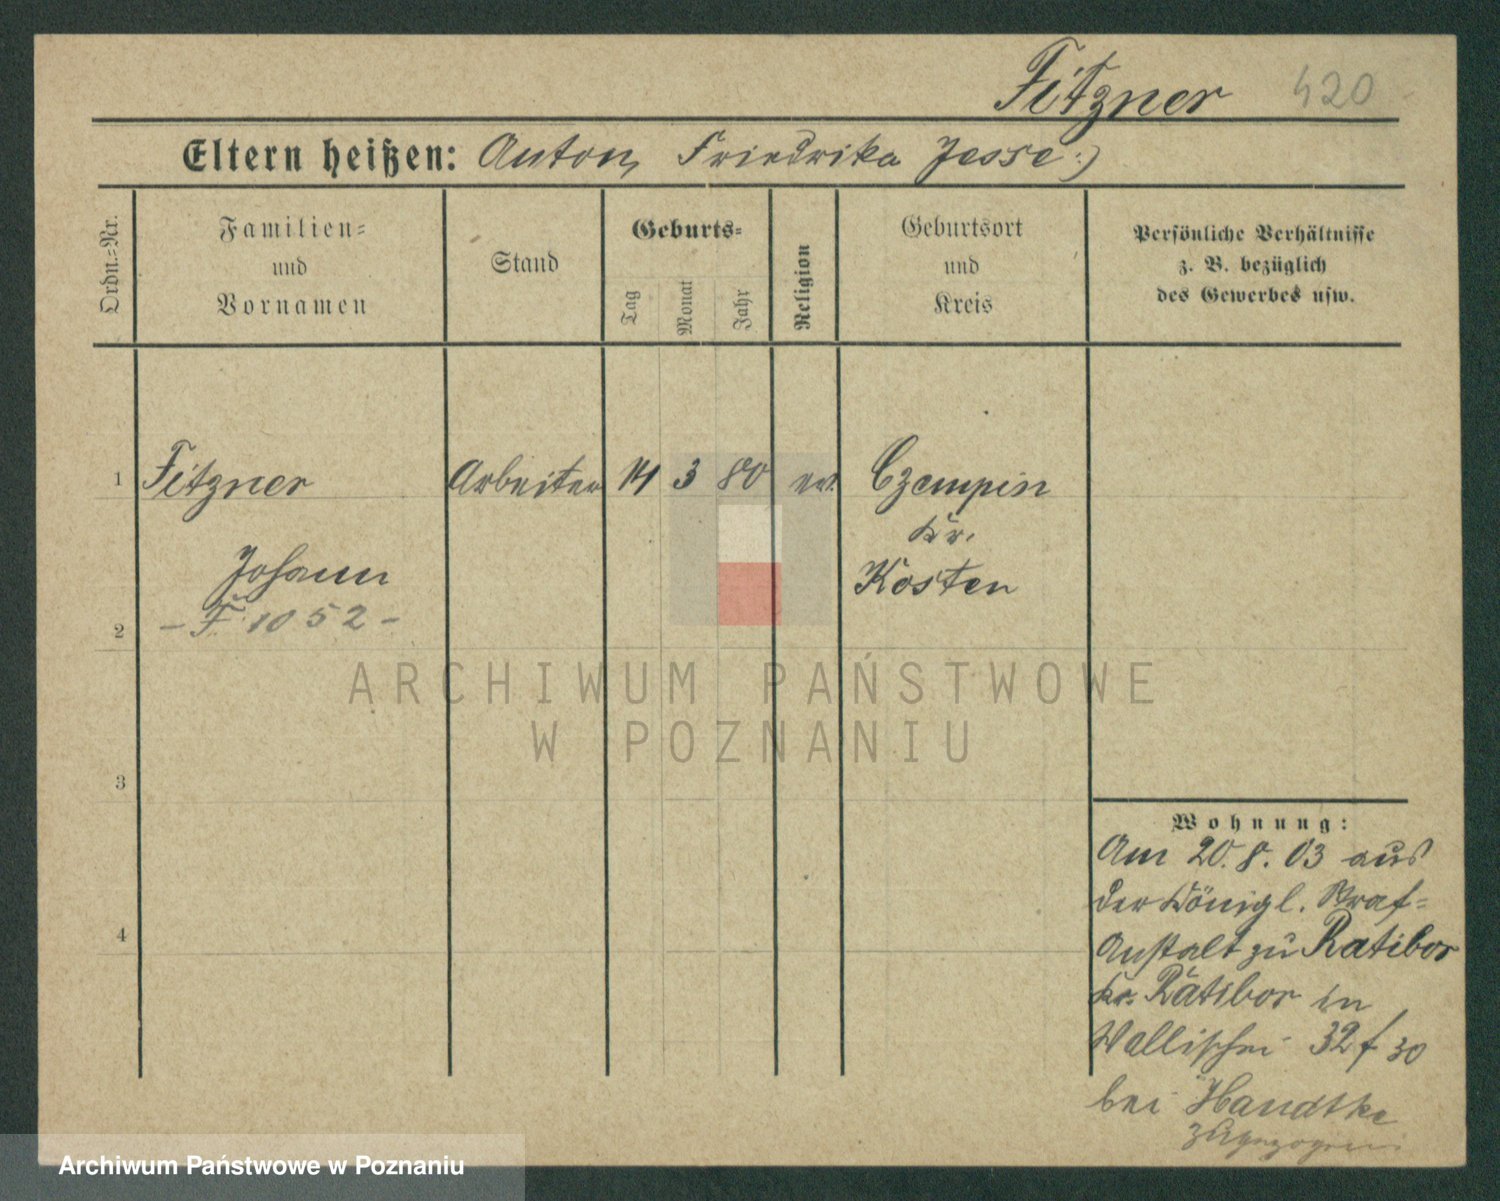 Fitzner 420
Eltern heißen: Anton, Friedrika Jesse:)
Ordn.=Nr.
Familien=
und
Vornamen
Stand
Geburts=
Tag
Monat
Jahr
Religion
Geburtsort
und
Kreis
Persönliche Verhältnisse
z. B. bezüglich
des Gewerbes usw.
1 Fitzner Arbeiter 14 3 80 ev. Czempin
Kr.
Johann Kosten
2 – F. 1052 –
ARCHIWUM PAŃSTWOWE
W POZNANIU
3
4
Wohnung:
Am 20. 8. 03 aus
der Königl. Straf=
Anstalt zu Ratibor
Kr. Ratibor in
Wallischei 32 f 30
bei Handtke
zugezogen
Archiwum Państwowe w Poznaniu